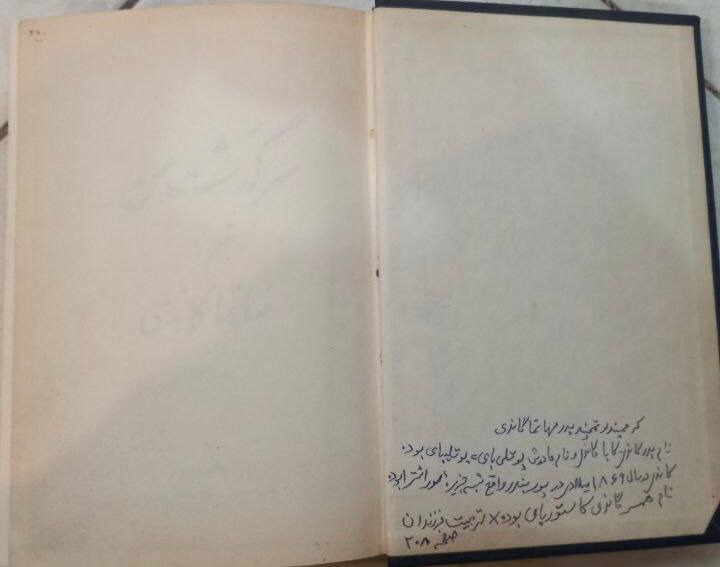 ۲۰۰
سرگذشت من
مهاتما گاندی
کرمچند اتمچند پدر مهاتما گاندی
نام پدر گاندی کابا گاندی و نام مادرش پوتلی بای = پوتلیبای بود.
گاندی در سال ۱۸۶۹ میلادی در پور بندر واقع شبه جزیره سوراشترا بود
نام همسر گاندی کاستوربای بوده × تربیت فرزندان
صفحه ۲۰۸